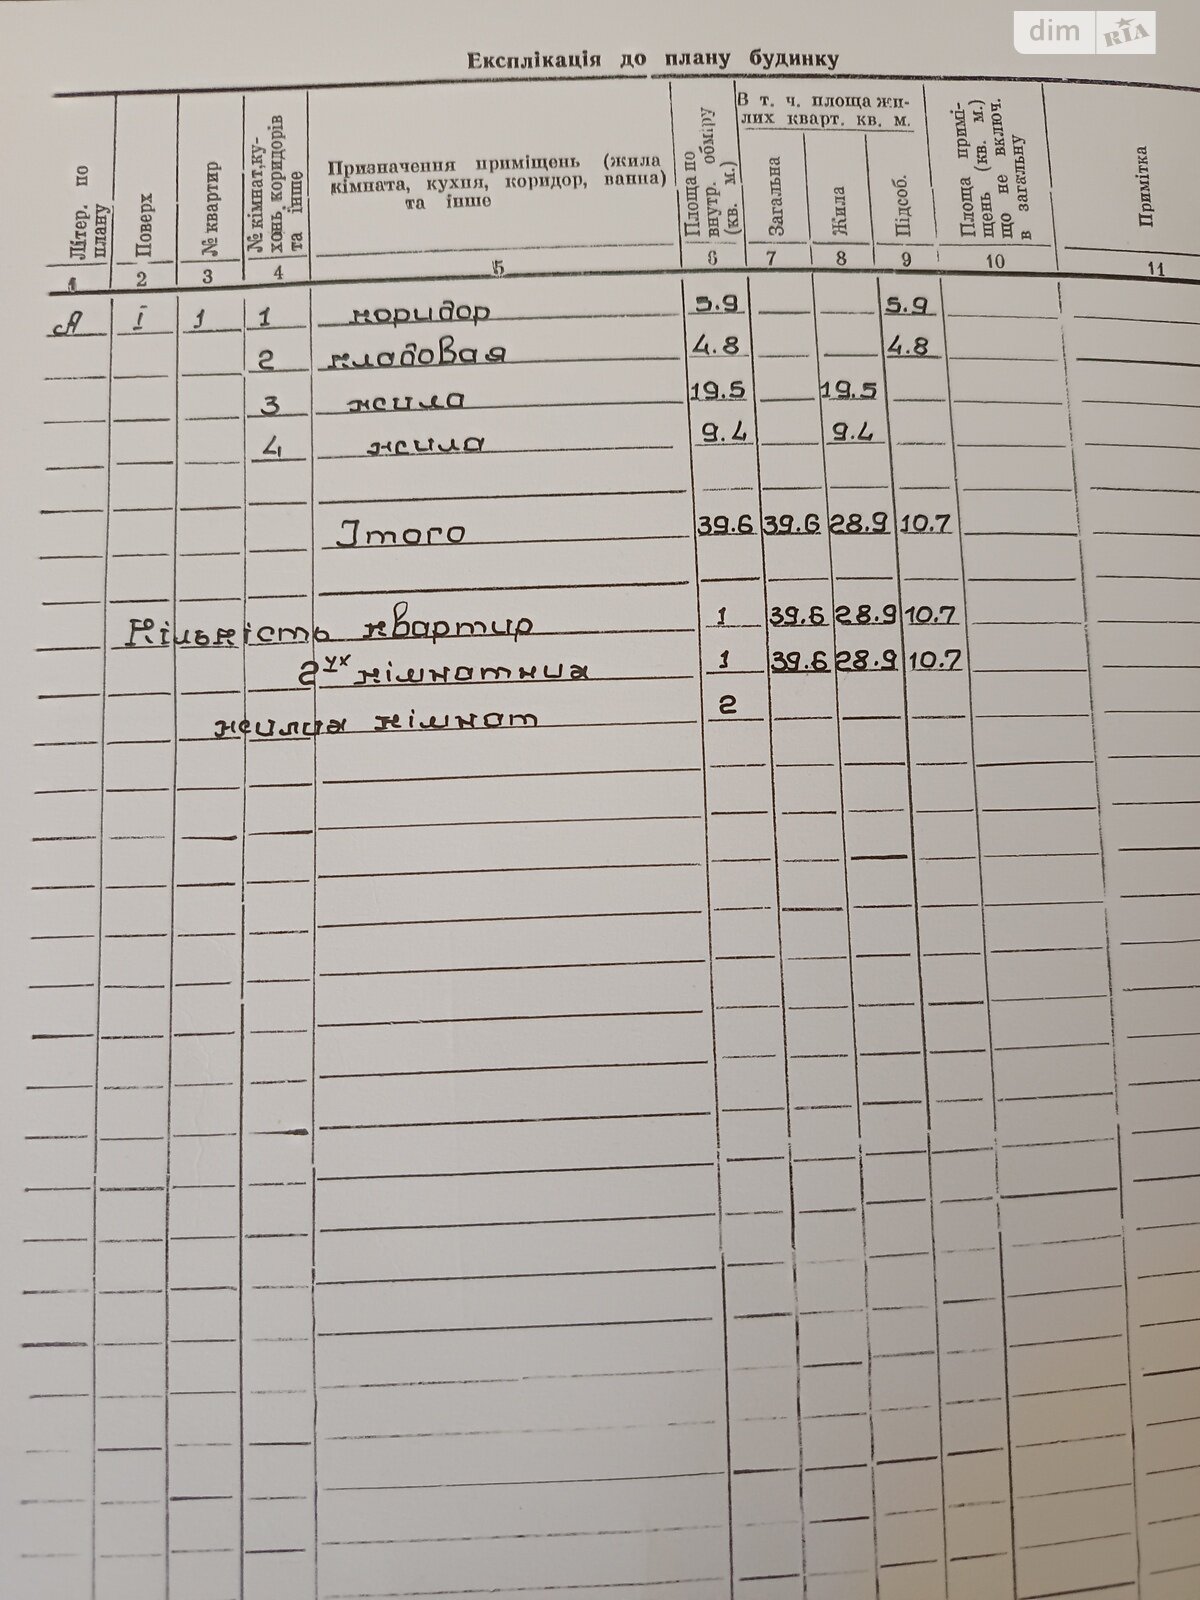 dim RIA
Експлікація до плану будинку
Літер. по плану
Поверх
№ квартир
№ кімнат, кухонь, коридорів та інше
Призначення приміщень (жила
кімната, кухня, коридор, ванна)
та інше
Площа по внутр. обміру (кв. м.)
В т. ч. площа жи-
лих кварт. кв. м.
Загальна
Жила
Підсоб.
Площа приміщень (кв. м.) що не включ. в загальну
Примітка
1 2 3 4 5 6 7 8 9 10 11
А І 1 1 коридор 5.9 5.9
2 кладовая 4.8 4.8
3 жила 19.5 19.5
4 жила 9.4 9.4
Ітого 39.6 39.6 28.9 10.7
Кількість квартир 1 39.6 28.9 10.7
2ух кімнатних 1 39.6 28.9 10.7
жилих кімнат 2